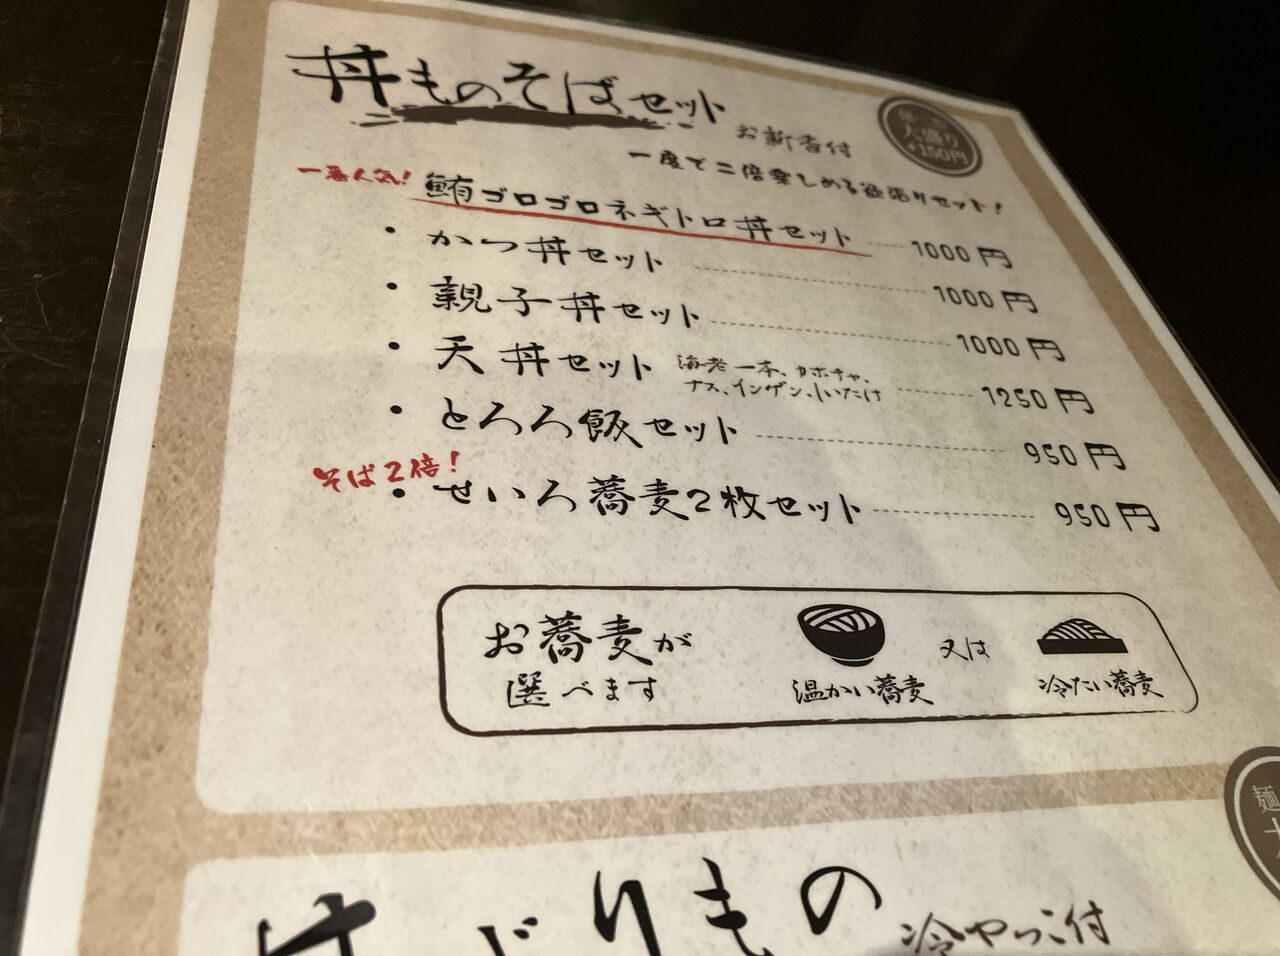 丼ものそばセット
お新香付
大盛り
+150円
一度で二倍楽しめる欲張りセット!
一番人気!
鮪ゴロゴロネギトロ丼セット 1000円
・かつ丼セット 1000円
・親子丼セット 1000円
・天丼セット 海老一本、カボチャ、ナス、インゲン、しいたけ 1250円
・とろろ飯セット 950円
そば2倍!
・せいろ蕎麦2枚セット 950円
お蕎麦が
選べます
温かい蕎麦
又は
冷たい蕎麦
麺
りもの
冷やっこ付